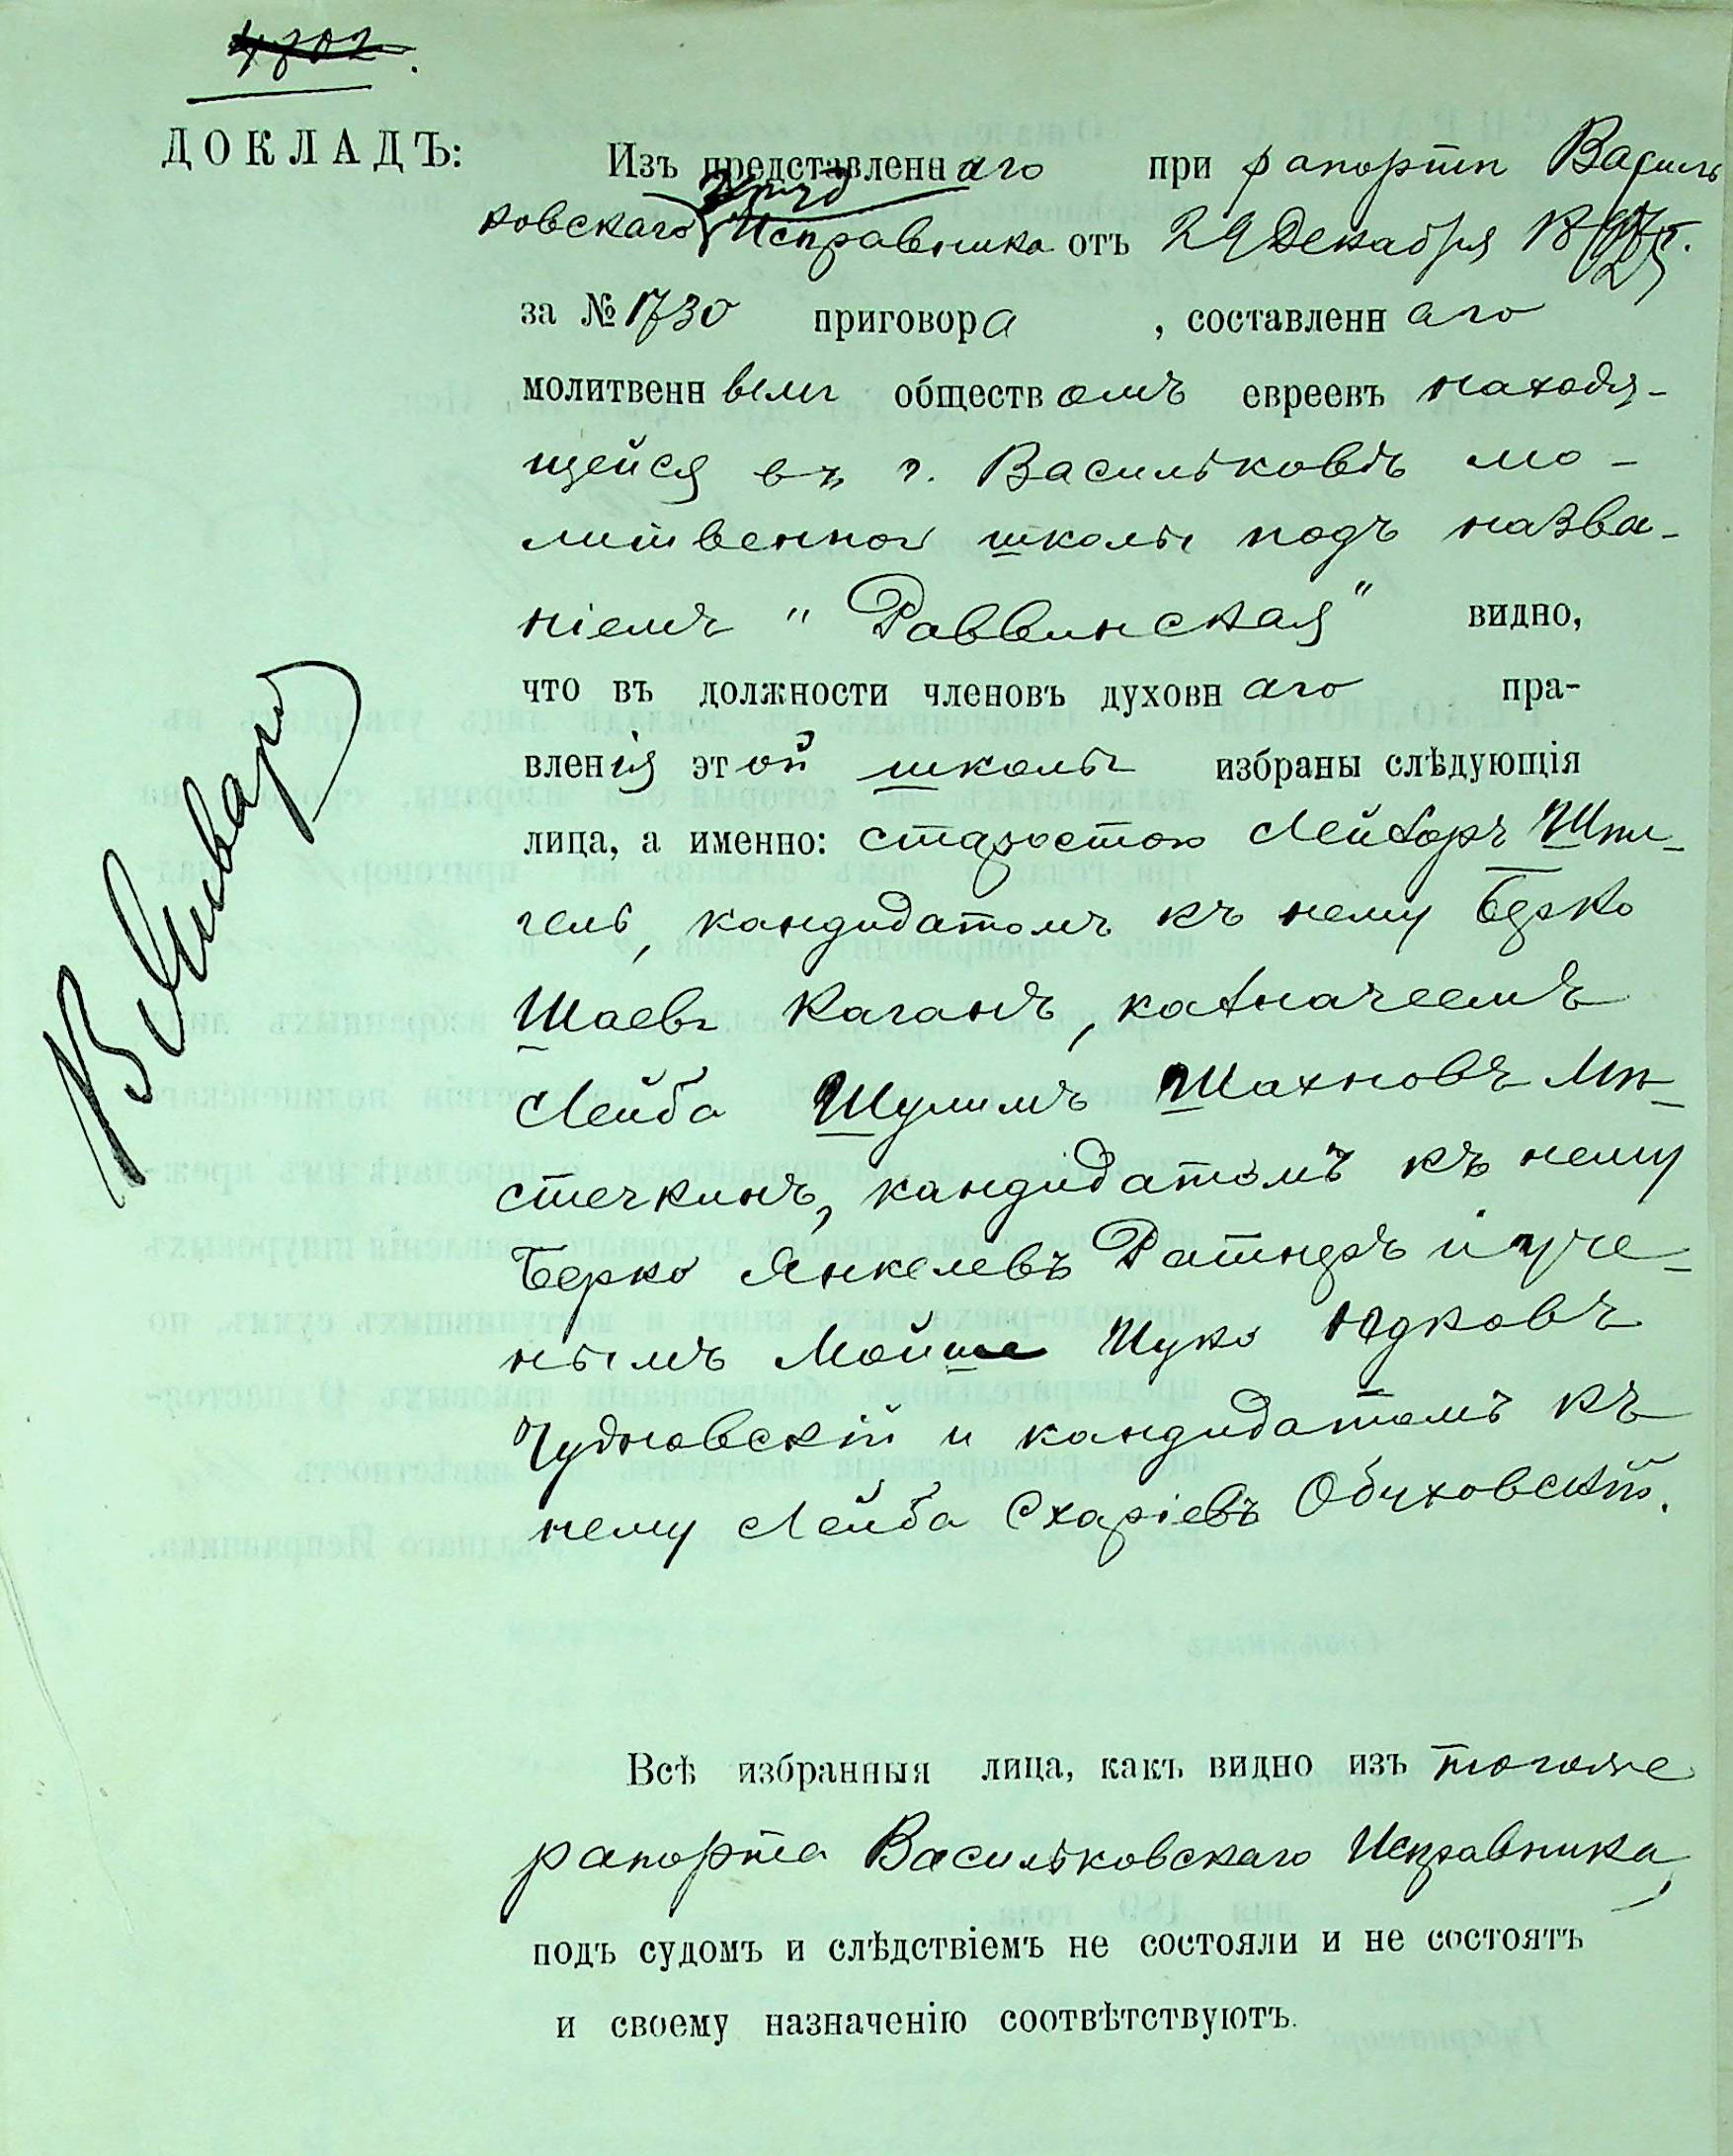 4702.
ДОКЛАДЪ:
Изъ представленнаго при рапортѣ Василь
ковскаго Исправника отъ 29 Декабря 18
за № 1730 приговора, составленнаго
молитвеннымъ обществомъ евреевъ находя-
щейся въ г. Васильковѣ мо-
литвенной школы подъ назва-
ніемъ "Раввинская" видно,
что въ должности членовъ духовнаго пра-
вленія этой школы избраны слѣдующія
лица, а именно: старостою Лейзоръ Шпи-
гель, кандидатомъ къ нему Берко
Шаевъ Каганъ, казначеемъ
Лейба Шулимъ Шахновъ Мѣ-
стечкинъ, кандидатомъ къ нему
Берко Янкелевъ Ратнеръ и уче-
нымъ Мойше Ицко Юдковъ
Чудновскій и кандидатомъ къ
нему Лейба Схаріевъ Обуховскій.
Всѣ избранныя лица, какъ видно изъ тогоже
рапорта Васильковскаго Исправника,
подъ судомъ и слѣдствіемъ не состояли и не состоятъ
и своему назначенію соотвѣтствуютъ.